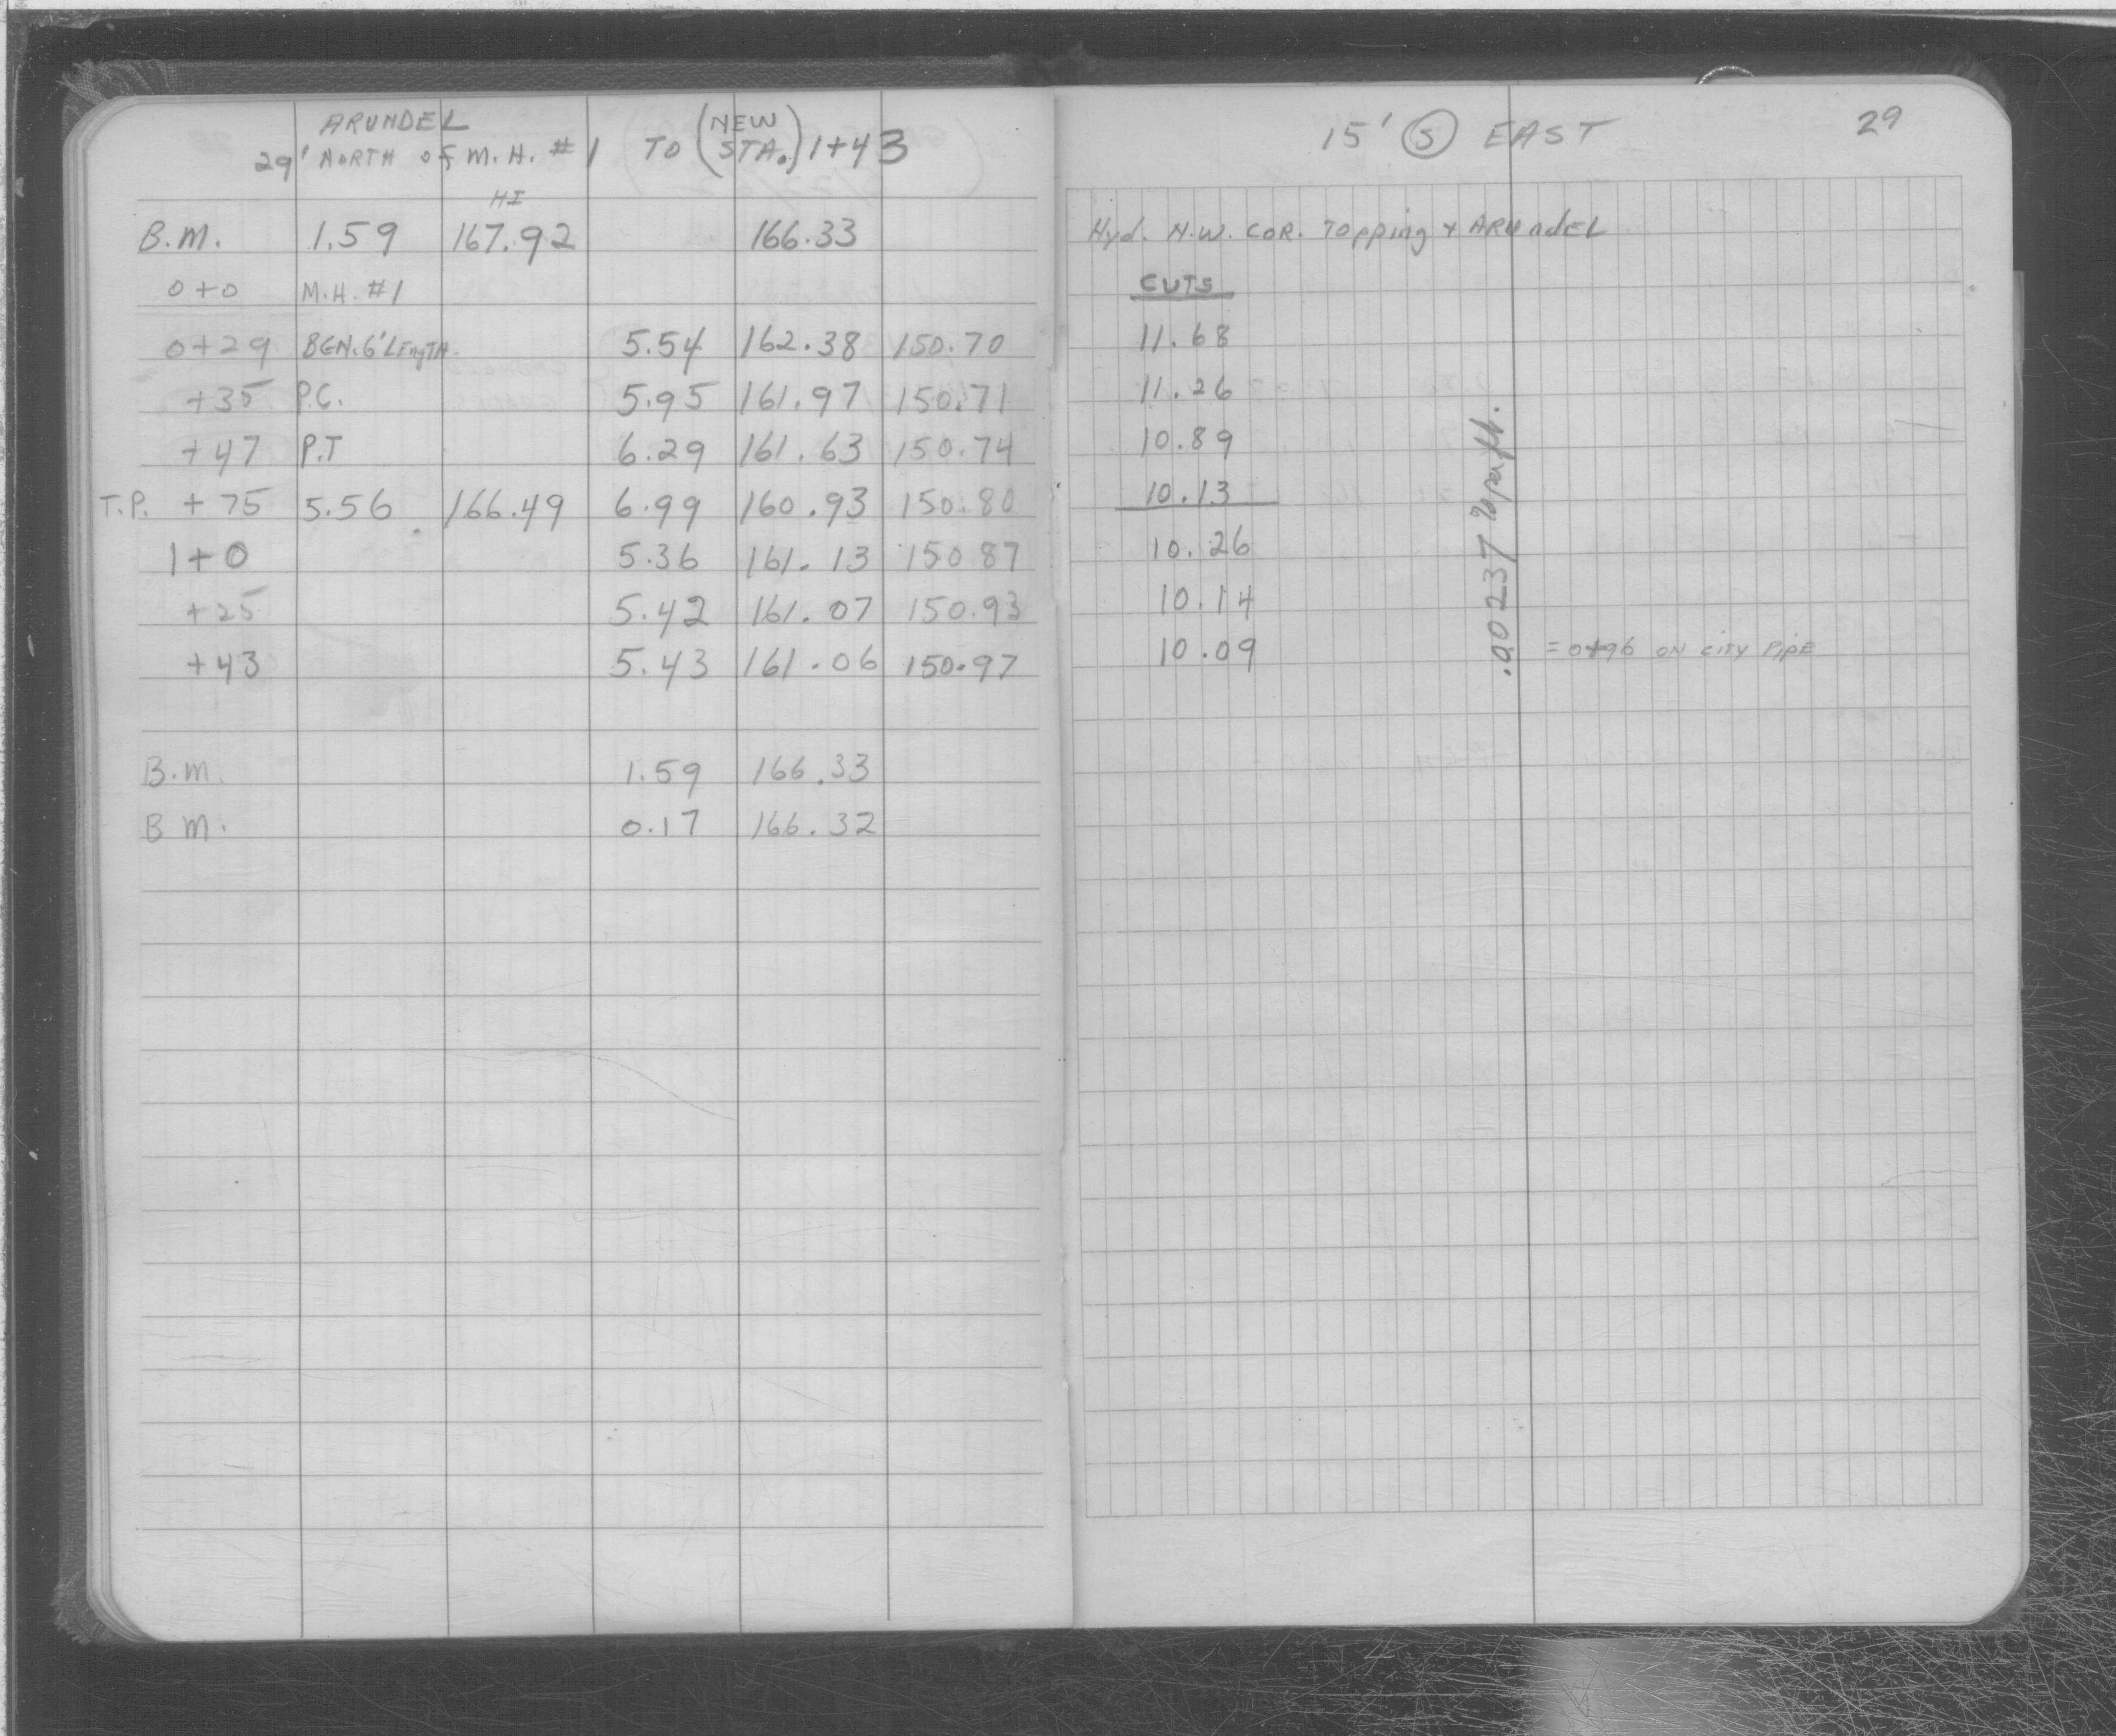 ARUNDEL
29' NORTH of M.H. #1 TO (NEW STA.) 1+43
HI
B.M. 1.59 167.92 166.33
0+0 M.H. #1
0+29 BGN. 6' LEngTH 5.54 162.38 150.70
+35 P.C. 5.95 161.97 150.71
+47 P.T 6.29 161.63 150.74
T.P. +75 5.56 166.49 6.99 160.93 150.80
1+0 5.36 161.13 150.87
+25 5.42 161.07 150.93
+43 5.43 161.06 150.97
B.M. 1.59 166.33
B M. 0.17 166.32
15' S EAST 29
Hyd. N.W. COR. Topping + ARUndEL
CUTS
11.68
11.26
10.89
10.13
10.26
10.14
10.09 = 0+96 ON CITY PIPE
.00237 % per ft.